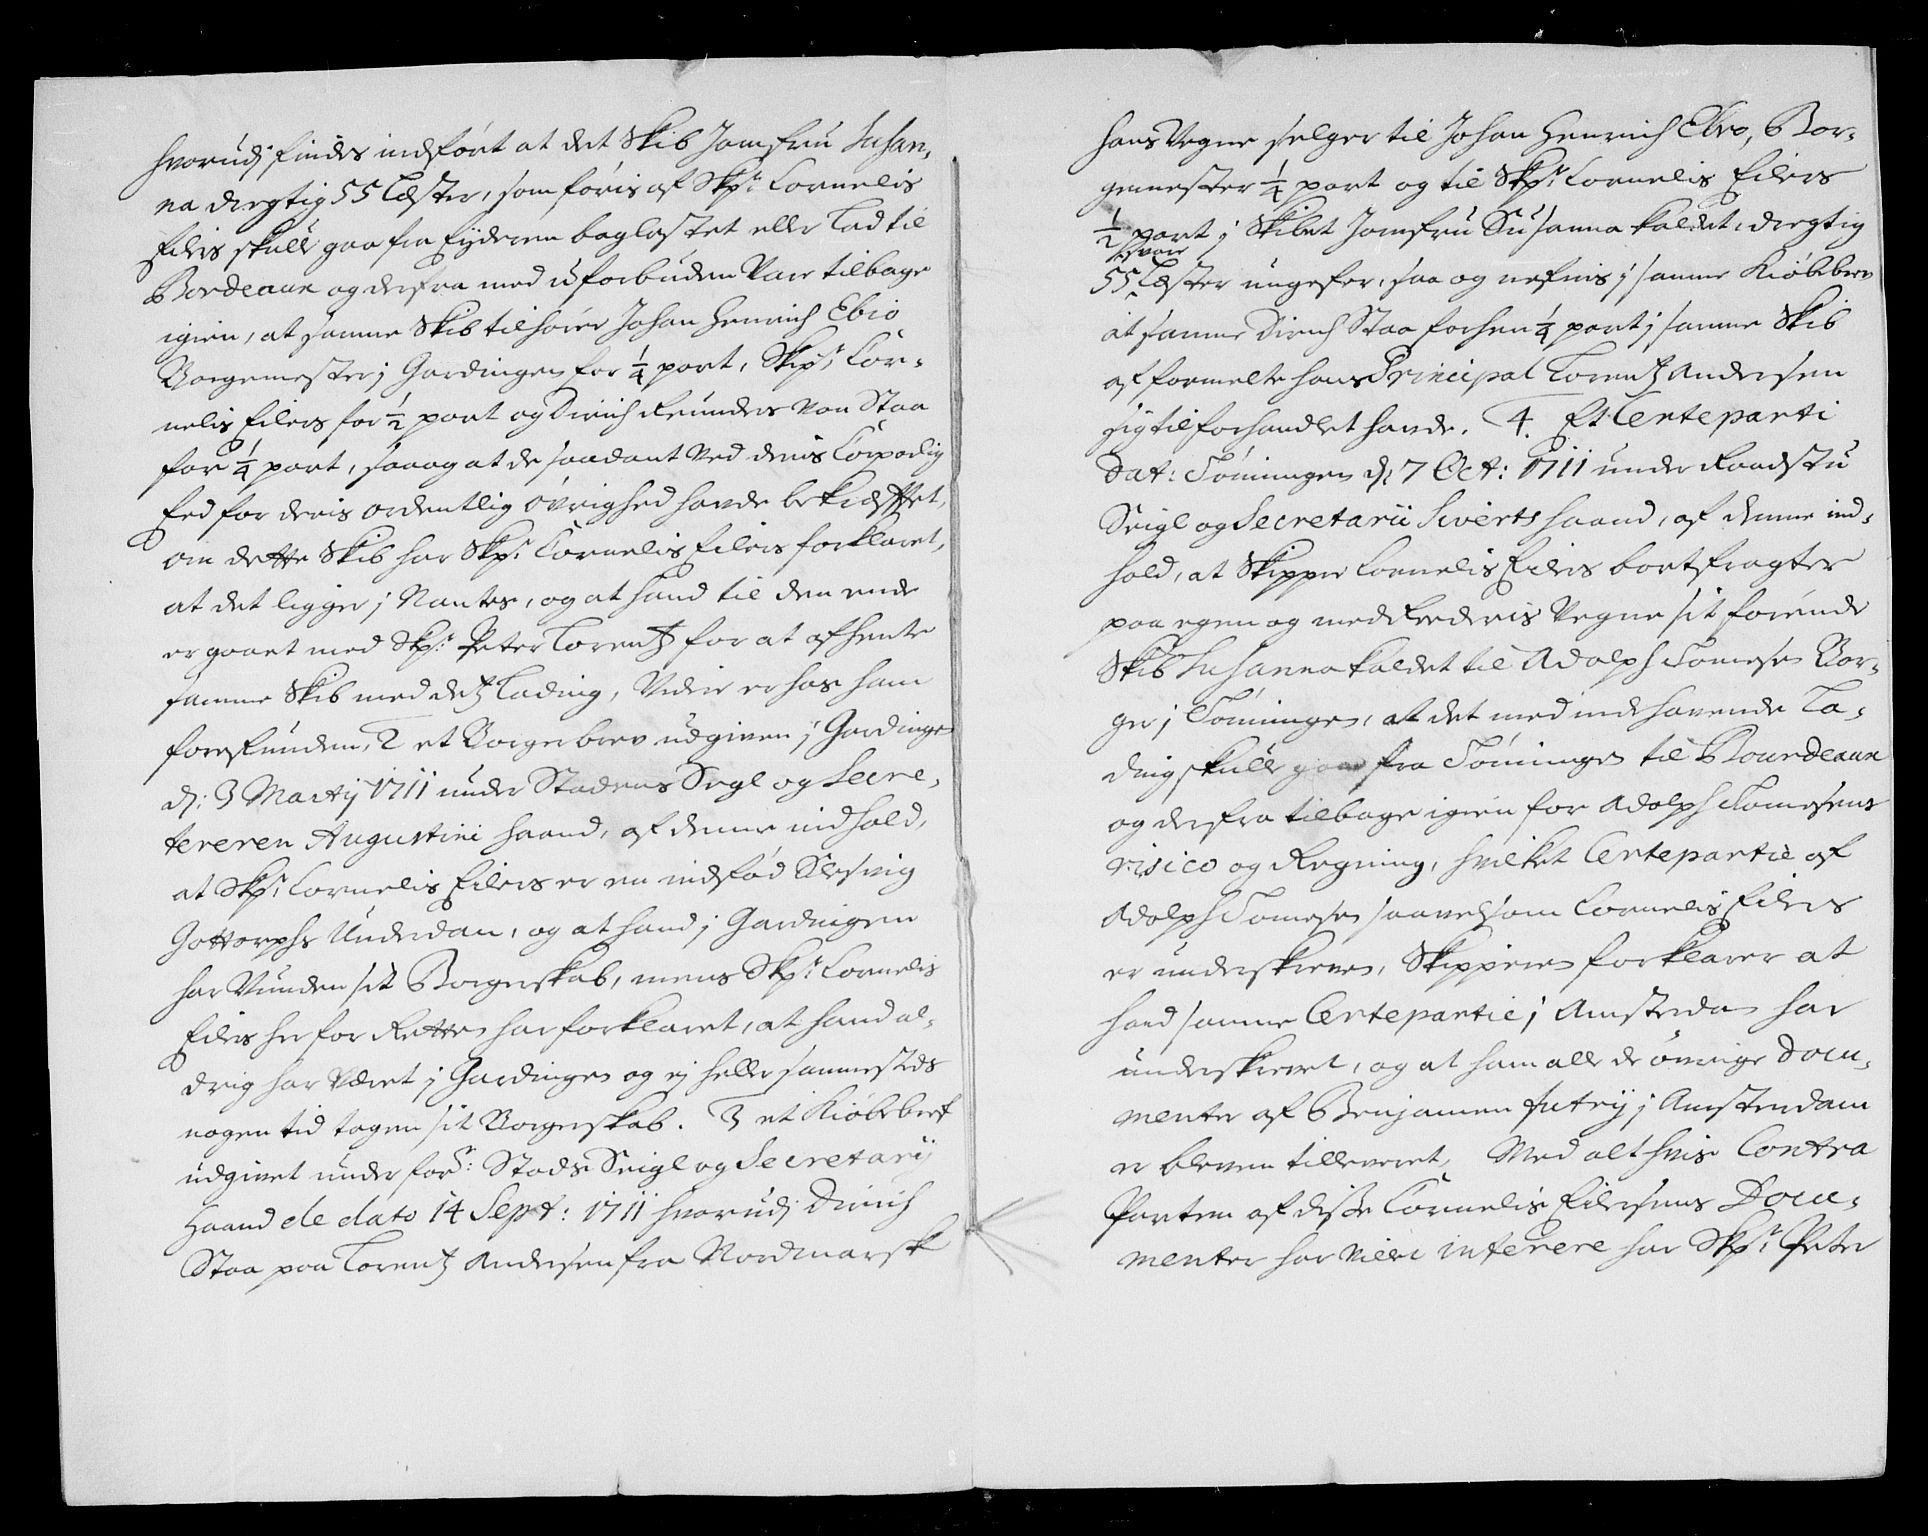 hvorudj findes indført at det Skib Jomfru Susan,
na dregtig 55 Læster, som føris af Skpr: Cornelis
Eilers skulle gaa fra Eyderen baglastet eller Lad til
Bordeaux og derfra med uforbuden Vare tilbage
igien, at samme Skib tilhører Johan Henrich Ebio
Borgemester j Gardingen for ¼ part, Skipr: Cor-
nelis Eilers for ½ part og Dirich Reunders von Staa
for ¼ part, saa og at de saadant Ved deris Corporlig
Eed for deris ordentlig øvrighed havde bekræfftet,
om dette Skib har Skpr: Cornelis Eilers forklaret,
at det ligger j Nantes, og at hand til den ende
er gaaet med Skpr: Peter Lorentz for at afhente
samme Skib med detz Lading, Videre er hos ham
forefunden, 2 et Borgerbrev udgiven j Gardingen
d: 3 Martij 1711 under Stadens Segl og Secre,
tereren Augustini haand, af denne indhold,
at Skpr: Cornelis Eilers er en indfød Slesvig
Gottorphs Underdan, og at hand j Gardingen
har Vunden sit Borgerskab, mens Skpr: Cornelis
Eilers her for Retten har forklaret, at hand al,
drig har Været j Gardingen og ej heller sammesteds
nogen tid tagen sit Borgerskab. 3 et Kiøbebref
udgivet under forr: Stads Seigl og Secretarij
Haand de dato 14 Sept: 1711 hvorudj Dirich
Staa paa Lorentz Andersen fra Nordmarsk
hans Vegne selger til Johan Henrich Ebio, Bor-
gemester ¼ part og til Skpr: Cornelis Eilers
½ part j Skibet Jomfru Susanna kaldet, dregtig
svare
55 Læster ungefer, saa og nefnis j samme Kiøbebrev
at samme Dirich Staa forhen ¼ part j samme Skib
af formelte hans Principal Lorentz Andersen
sig tilforhandlet havde. 4. Et Certeparti
Dat: Tønningen d: 7 Oct: 1711 under Raadstu
Seigl og Secretarii Siverts haand, af denne ind-
hold, at Skipper Cornelis Eilers bortfragter
paa egen og med Reederis Vegne sit førende
Skib Susanna kaldet til Adolph Tomesen Bor-
ger j Tønningen, at det med indehavende La-
ding skulle gaa fra Tønningen til Bourdeaux
og derfra tilbage igien for Adolph Tomesens
risico og Regning, hvilket Certepartie af
Adolph Tomesen saavelsom Cornelis Eilers
er underskreven, Skipperen forklarer at
hand samme Certepartie j Amsterdam har
underskrevet, og at ham alle de øvrige Docu-
menter af Benjamen j Amsterdam
er bleven tilleveret, Med alt hvis Contra
Parten af disse Cornelis Eilersens Docu-
menter har villet inferere har Skpr: Peter